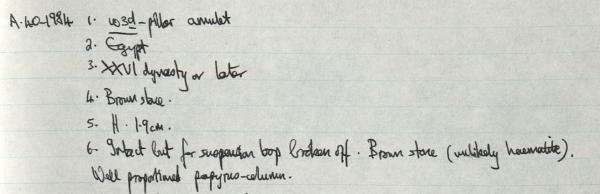 A.40-1984 1. w3d-pillar amulet
2. Egypt
3. XXVI dynasty or later
4. Brown stone.
5. H. 1.9cm.
6. Intact but for suspension loop broken off. Brown stone (unlikely haematite).
Well proportioned papyrus-column.